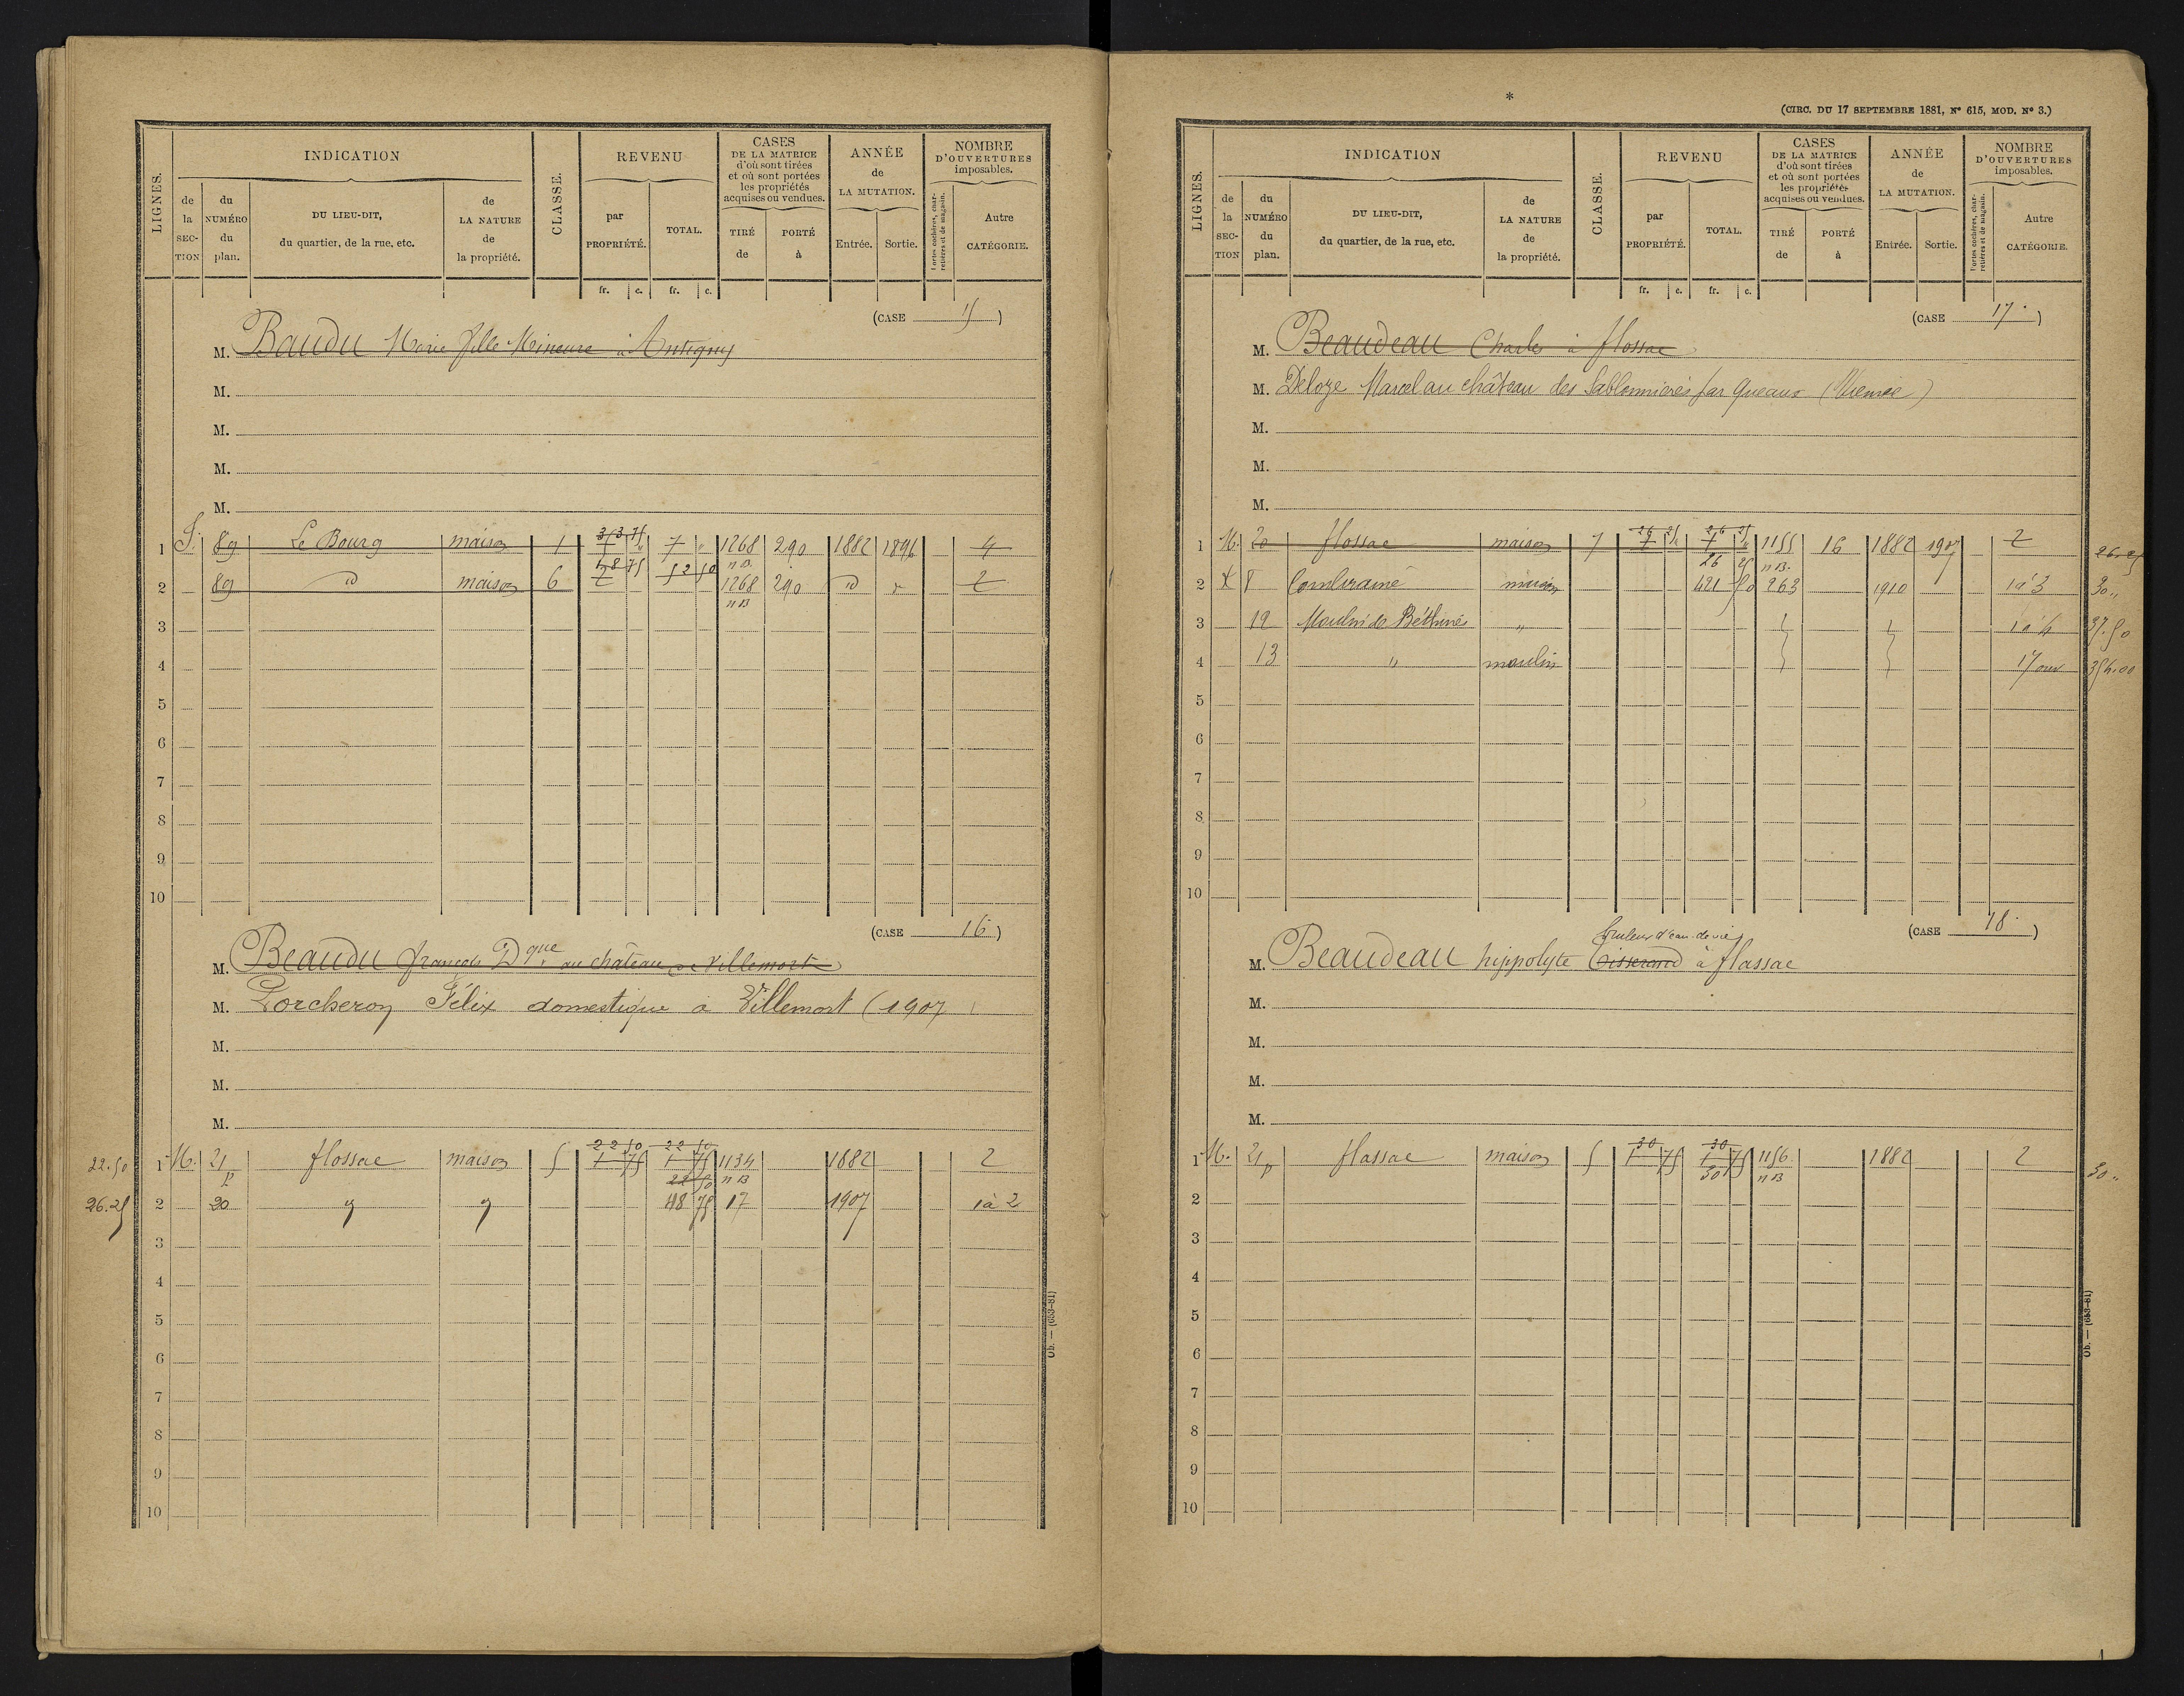 LIGNES.
INDICATION
de la SECTION
du NUMÉRO du plan.
DU LIEU-DIT, du quartier, de la rue, etc.
de LA NATURE de la propriété.
CLASSE.
REVENU
par PROPRIÉTÉ.
TOTAL.
CASES DE LA MATRICE d'où sont tirées et où sont portées les propriétés acquises ou vendues.
TIRÉ de
PORTÉ à
ANNÉE de LA MUTATION.
Entrée. Sortie.
NOMBRE D'OUVERTURES imposables.
Portes cochères, charretières et de magasin.
Autre CATÉGORIE.
fr. c. fr. c.
(CASE 15)
M. Baudu Marie fille Mineure à Antigny
M.
M.
M.
M.
1 89 Le Bourg maison 1 7 " 1268 290 1882 1896 4
n B
2 89 id maison 6 52 50 1268 290 id 2
n B
3
4
5
6
7
8
9
10
(CASE 16)
M. Beaudu françois Dque au château de Villemort
M. Porcheron Félix domestique à Villemort (1907
M.
M.
M.
22 50 22 50
22.50 1 M. 21 p flossac maison 5 1 75 1 75 1134 1882 2
22 50 n B
26.25 2 20 48 75 17 1907 1 à 2
3
4
5
6
7
8
9
10
Ob. — (653-81)
*
(CIRC. DU 17 SEPTEMBRE 1881, N° 615, MOD. N° 3.)
LIGNES.
INDICATION
de la SECTION
du NUMÉRO du plan.
DU LIEU-DIT, du quartier, de la rue, etc.
de LA NATURE de la propriété.
CLASSE.
REVENU
par PROPRIÉTÉ.
TOTAL.
CASES DE LA MATRICE d'où sont tirées et où sont portées les propriétés acquises ou vendues.
TIRÉ de
PORTÉ à
ANNÉE de LA MUTATION.
Entrée. Sortie.
NOMBRE D'OUVERTURES imposables.
Portes cochères, charretières et de magasin.
Autre CATÉGORIE.
fr. c. fr. c.
(CASE 17)
M. Beaudeau Charles à flossac
M. Deloze Marcel au château des Sablonnières par Queaux (Vienne)
M.
M.
M.
26 25 26 25
1 M. 20 flossac maison 7 7 " 7 " 1155 16 1882 1907 2 26.25
26 25 n B.
2 8 maison 421 50 263 1910 1 à 3 30 "
3 12 Moulin de Béthines " 37.50
4 13 " moulin 17 ouv
5
6
7
8
9
10
(CASE 18)
bruleur d'eau-de-vie
M. Beaudeau hippolyte tisserand à flassac
M.
M.
M.
M.
30 30
1 M. 21 p flassac maison 5 1 75 1 75 1156 1882 2 30 "
30 n B
2
3
4
5
6
7
8
9
10
Ob. — (653-81)